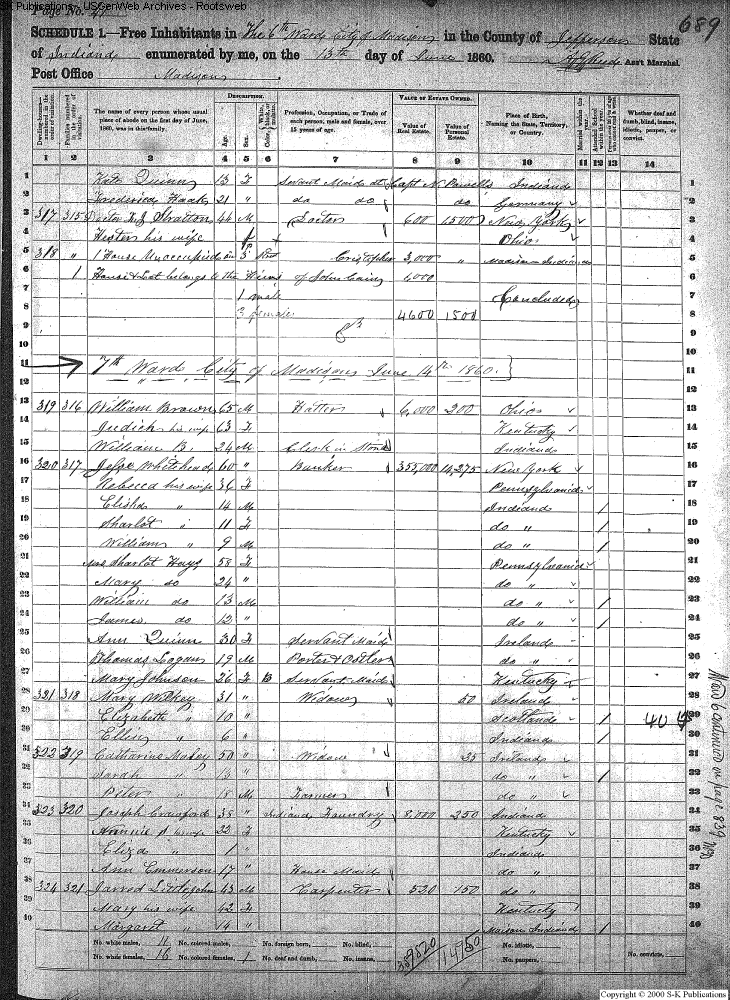 S-K Publications - USGenWeb Archives - Rootsweb
Page No. 41
689
SCHEDULE 1.—Free Inhabitants in The 6th Ward City of Madison in the County of Jefferson State
of Indiana enumerated by me, on the 13th day of June 1860. Ass't Marshal.
Post Office Madison
Dwelling-houses—numbered in the order of visitation.
Families numbered in the order of visitation.
The name of every person whose usual place of abode on the first day of June, 1860, was in this family.
DESCRIPTION.
Age.
Sex.
White, black, or mulatto.
Color,
Profession, Occupation, or Trade of each person, male and female, over 15 years of age.
VALUE OF ESTATE OWNED.
Value of Real Estate.
Value of Personal Estate.
Place of Birth, Naming the State, Territory, or Country.
Married within the year.
Attended School within the year.
Whether deaf and dumb, blind, insane, idiotic, pauper, or convict.
1 2 3 4 5 6 7 8 9 10 11 12 13 14
1 Kate Quinn 13 F Servant Maid at Capt N. Powells Indiana 1
2 Frederica Haak 21 " do do do Germany 2
3 317 315 Doctor Stratton 44 M Doctor 600 1500 New York 3
4 Hester his wife F Ohio 4
5 318 " 1 House Unoccupied Cristopher 3,000 " Madison Indiana 5
6 1 House & Lot belongs to the Heirs of John 1,000 6
7 1 male Concluded 7
8 3 female 4600 1500 8
9 9
10 10
11 7th Ward City of Madison June 14th 1860. 11
12 12
13 319 316 William Brown 65 M Hatter 6,000 200 Ohio 13
14 Judieh his wife 63 F Kentucky 14
15 William B. 24 M Clerk in Store Indiana 15
16 320 317 Jesse Whitehead 60 " Banker 355,000 14,275 New York 16
17 Rebecca his wife 36 F Pennsylvania 17
18 Elisha " 14 M Indiana / 18
19 Sharlot " 11 F do " / 19
20 William " 9 M do " / 20
21 Mrs Sharlot Hays 58 F Pennsylvania 21
22 Mary do 24 " do " 22
23 William do 13 M do " / 23
24 James do 12 " do " / 24
25 Ann Quinn 30 F Servant Maid Ireland 25
26 Thomas Logan 19 M Porter & Ostler do " 26
27 Mary Johnson 26 F B Servant Maid Kentucky 27
28 321 318 Mary Wilkey 31 " Widow 50 Ireland 28
29 Elizabeth " 10 " Scotland / 29
30 Ellis " 6 " Indiana / 30
31 322 319 Catharine Maley 50 " Widow 25 Ireland 31
32 Sarah " 13 " do " / 32
33 Peter " 18 M Farmer do " 33
34 323 320 Joseph Crawford 35 " Indiana Foundry 8,000 250 Indiana 34
35 Annie his wife 22 F Kentucky 35
36 Eliza " 1 " Indiana 36
37 Ann Emmerson 17 " House Maid do " 37
38 324 321 Jarred Littlejohn 43 M Carpenter 520 150 do " 38
39 Mary his wife 42 F Kentucky 39
40 Margaret " 14 " Indiana / 40
Ward 6 continued on page 839
No. white males, 11 No. colored males, No. foreign born, No. blind, 389520 14950 No. idiotic, No. convicts,
No. white females, 16 No. colored females, 1 No. deaf and dumb, No. insane, No. paupers,
Copyright © 2000 S-K Publications